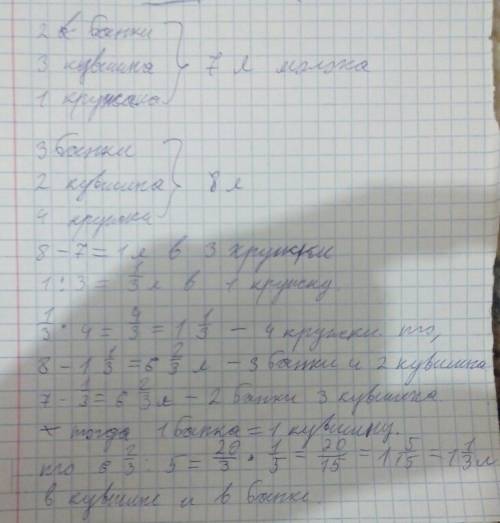 2 банки
3 кувшина } 7 л молока
1 кружка
3 банки
2 кувшина } 8 л
4 кружки
8 - 7 = 1 л в 3 кружки
1 : 3 = 1/3 л в 1 кружку.
1/3 · 4 = 4/3 = 1 1/3 - 4 кружки
8 - 1 1/3 = 6 2/3 л - 3 банки и 2 кувшина
7 - 1/3 = 6 2/3 л - 2 банки 3 кувшина
тогда 1 банка = 1 кувшину.
6 2/3 : 5 = 20/3 · 1/5 = 20/15 = 1 5/15 = 1 1/3 л
в кувшине и в банке